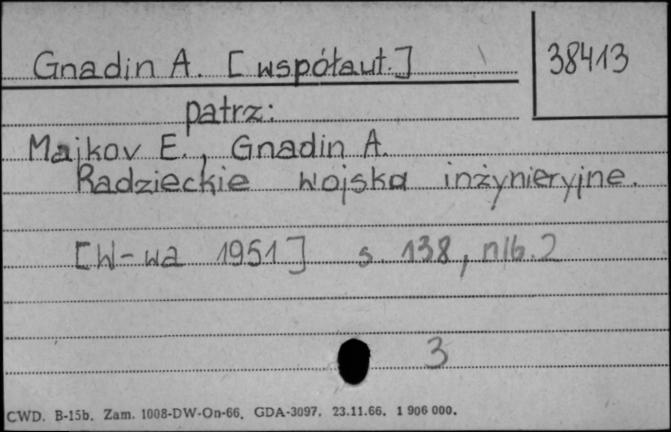 Gnadin A. [współaut.]
38413
patrz:
Majkov E., Gnadin A.
Radzieckie wojska inżynieryjne.
[W-wa 1951] s. 138, nlb. 2
3
CWD. B-15b. Zam. 1008-DW-On-66. GDA-3097. 23.11.66. 1 906 000.